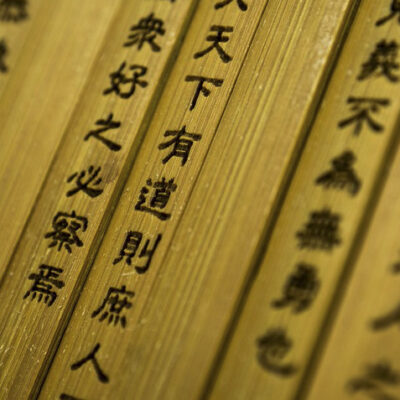 義不為無勇也
天下有道則庶人
衆好之必察焉